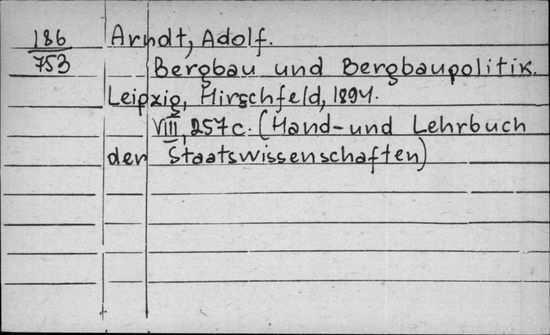 186
753
Arndt, Adolf.
Bergbau und Bergbaupolitik.
Leipzig, Hirschfeld, 1894.
VIII, 257 c. (Hand- und Lehrbuch
der Staatswissenschaften)